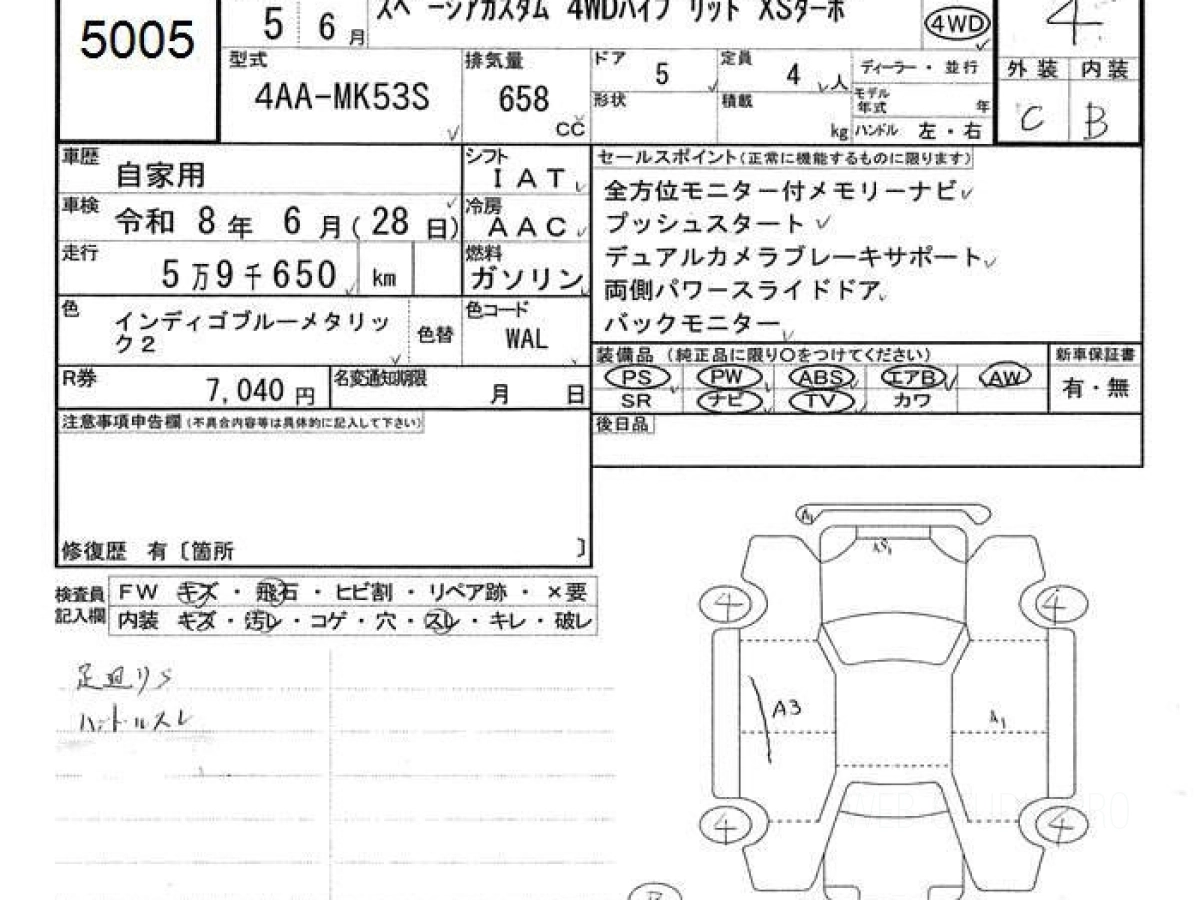 5005
5 6 月
スペーシアカスタム 4WDハイブリッド XSターボ
4WD
4
型式
4AA-MK53S
排気量
658
CC
ドア
5
定員
4 人
ディーラー・並行
形状
積載
kg
モデル年式
年
ハンドル 左・右
外装 内装
C B
車歴
自家用
シフト
IAT
車検
令和 8年 6月(28日)
冷房
AAC
走行
5万9千650 km
燃料
ガソリン
色
インディゴブルーメタリッ
ク2
色替
色コード
WAL
R券
7,040 円
名変通知期限
月 日
セールスポイント(正常に機能するものに限ります)
全方位モニター付メモリーナビ
プッシュスタート
デュアルカメラブレーキサポート
両側パワースライドドア
バックモニター
装備品 (純正品に限り○をつけてください)
PS PW ABS エアB AW
SR ナビ TV カワ
新車保証書
有・無
後日品
注意事項申告欄(不具合内容等は具体的に記入して下さい)
修復歴 有〔箇所 〕
検査員
記入欄
FW キズ・飛石・ヒビ割・リペア跡・×要
内装 キズ・汚レ・コゲ・穴・スレ・キレ・破レ
足廻りS
ハンドルスレ
A1
4 4
A3
A1
4 4